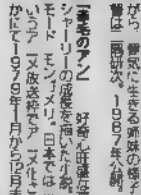 がら　情気に生きる姉妹の様子
督は　岡研次。1987年公開
「赤毛のアン」　好奇心旺盛な
シャーリーの成長を描いた小説
モード　モンゴメリ。日本では
いうアニメ放送枠でアニメ化さ
かにて1979年1月から12月ま